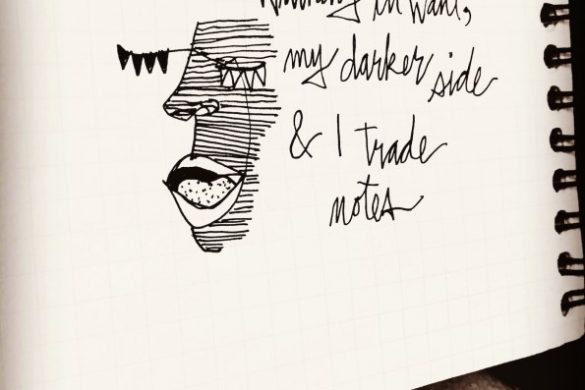 in want,
my darker side
& I trade
notes